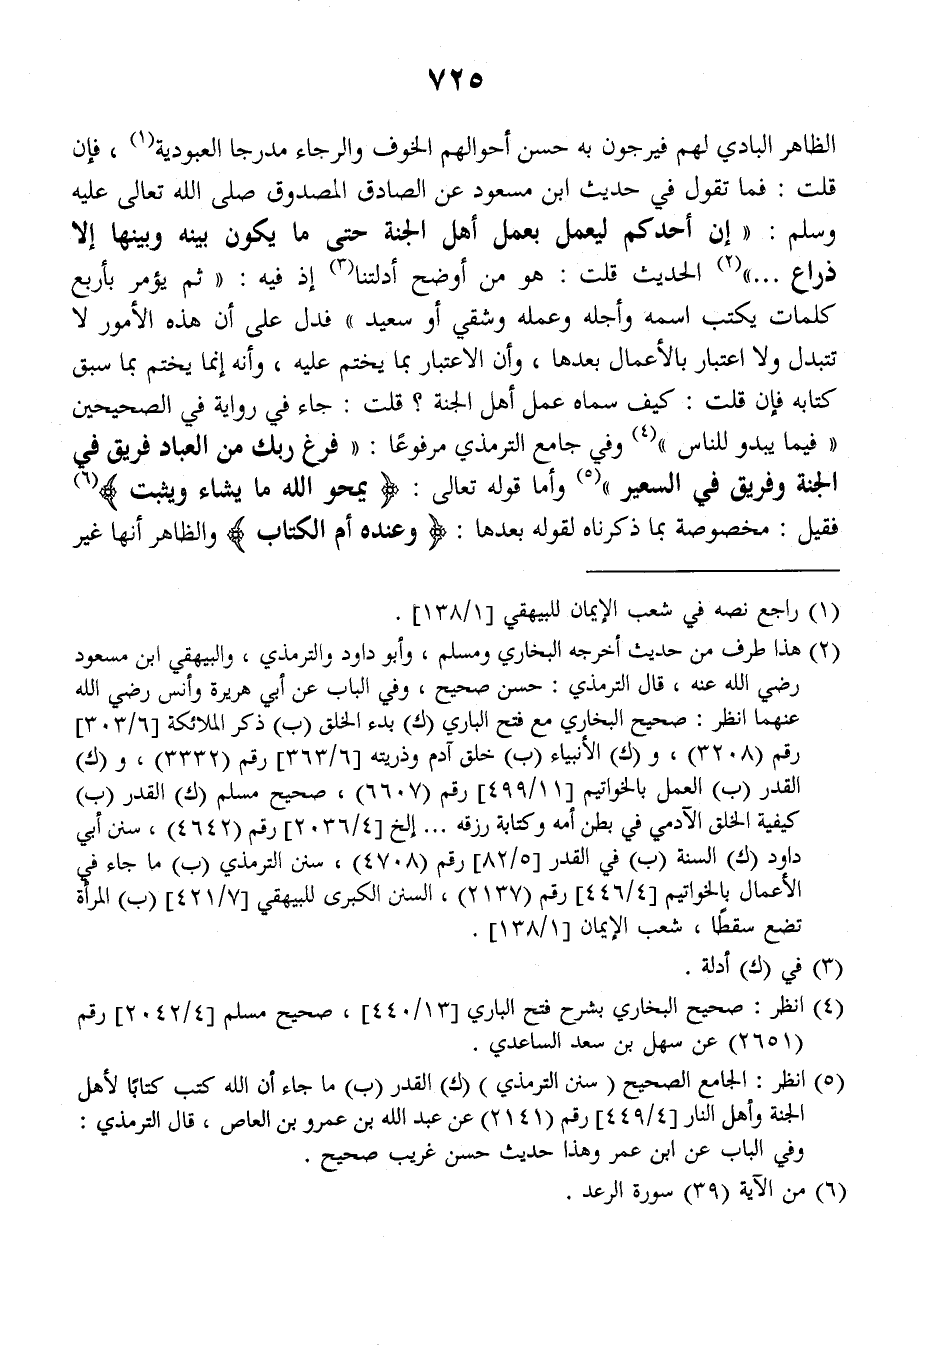 ٧٢٥
الظاهر البادي لهم فيرجون به حسن أحوالهم الخوف والرجاء مدرجا العبودية(١) ، فإن
قلت : فما تقول في حديث ابن مسعود عن الصادق المصدوق صلى الله تعالى عليه
وسلم : « إن أحدكم ليعمل بعمل أهل الجنة حتى ما يكون بينه وبينها إلا
ذراع ...»(٢) الحديث قلت : هو من أوضح أدلتنا(٣) إذ فيه : « ثم يؤمر بأربع
كلمات يكتب اسمه وأجله وعمله وشقي أو سعيد » فدل على أن هذه الأمور لا
تتبدل ولا اعتبار بالأعمال بعدها ، وأن الاعتبار بما يختم عليه ، وأنه إنما يختم بما سبق
كتابه فإن قلت : كيف سماه عمل أهل الجنة ؟ قلت : جاء في رواية في الصحيحين
« فيما يبدو للناس »(٤) وفي جامع الترمذي مرفوعًا : « فرغ ربك من العباد فريق في
الجنة وفريق في السعير »(٥) وأما قوله تعالى : ﴿ يمحو الله ما يشاء ويثبت ﴾(٦)
فقيل : مخصوصة بما ذكرناه لقوله بعدها : ﴿ وعنده أم الكتاب ﴾ والظاهر أنها غير
(١) راجع نصه في شعب الإيمان للبيهقي [١٣٨/١] .
(٢) هذا طرف من حديث أخرجه البخاري ومسلم ، وأبو داود والترمذي ، والبيهقي ابن مسعود
رضي الله عنه ، قال الترمذي : حسن صحيح ، وفي الباب عن أبي هريرة وأنس رضي الله
عنهما انظر : صحيح البخاري مع فتح الباري (ك) بدء الخلق (ب) ذكر الملائكة [٣٠٣/٦]
رقم (٣٢٠٨) ، و (ك) الأنبياء (ب) خلق آدم وذريته [٣٦٣/٦] رقم (٣٣٣٢) ، و (ك)
القدر (ب) العمل بالخواتيم [٤٩٩/١١] رقم (٦٦٠٧) ، صحيح مسلم (ك) القدر (ب)
كيفية الخلق الآدمي في بطن أمه وكتابة رزقه ... إلخ [٢٠٣٦/٤] رقم (٤٦٤٢) ، سنن أبي
داود (ك) السنة (ب) في القدر [٨٢/٥] رقم (٤٧٠٨) ، سنن الترمذي (ب) ما جاء في
الأعمال بالخواتيم [٤٤٦/٤] رقم (٢١٣٧) ، السنن الكبرى للبيهقي [٤٢١/٧] (ب) المرأة
تضع سقطًا ، شعب الإيمان [١٣٨/١] .
(٣) في (ك) أدلة .
(٤) انظر : صحيح البخاري بشرح فتح الباري [٤٤٠/١٣] ، صحيح مسلم [٢٠٤٢/٤] رقم
(٢٦٥١) عن سهل بن سعد الساعدي .
(٥) انظر : الجامع الصحيح ( سنن الترمذي ) (ك) القدر (ب) ما جاء أن الله كتب كتابًا لأهل
الجنة وأهل النار [٤٤٩/٤] رقم (٢١٤١) عن عبد الله بن عمرو بن العاص ، قال الترمذي :
وفي الباب عن ابن عمر وهذا حديث حسن غريب صحيح .
(٦) من الآية (٣٩) سورة الرعد .